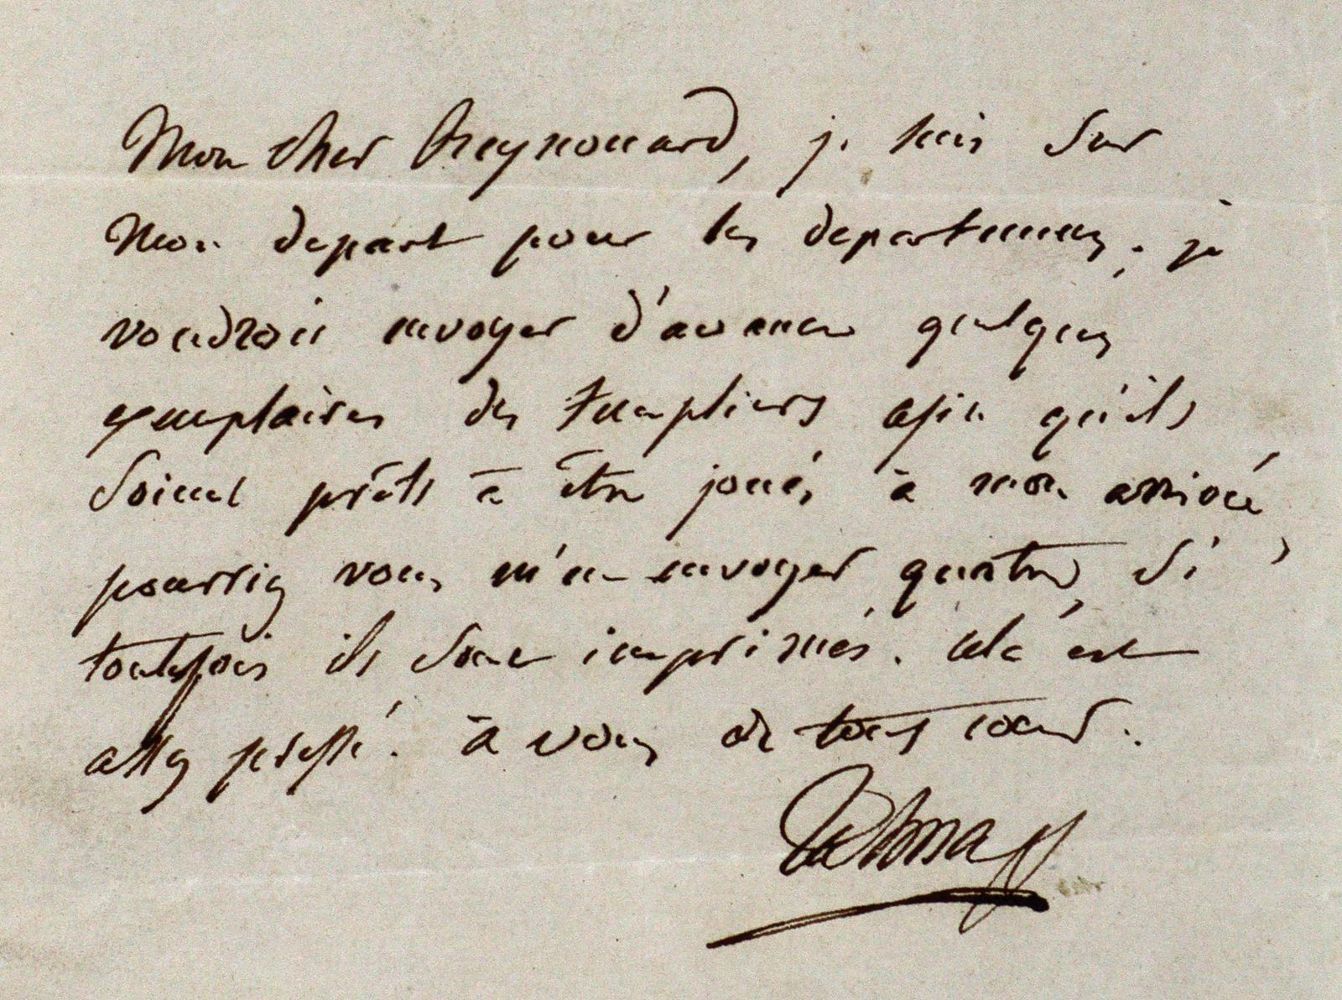 Mon cher Reynouard, je suis sur
mon depart pour les departemens. je
voudrois envoyer d'avance quelques
exemplaires des templiers afin qu'ils
soient prêts à être joués à mon arrivée,
pourriez vous m'en envoyer quatre, si
toutefois ils sont imprimés. celà est
assez pressé. à vous de tout cœur.
Talma